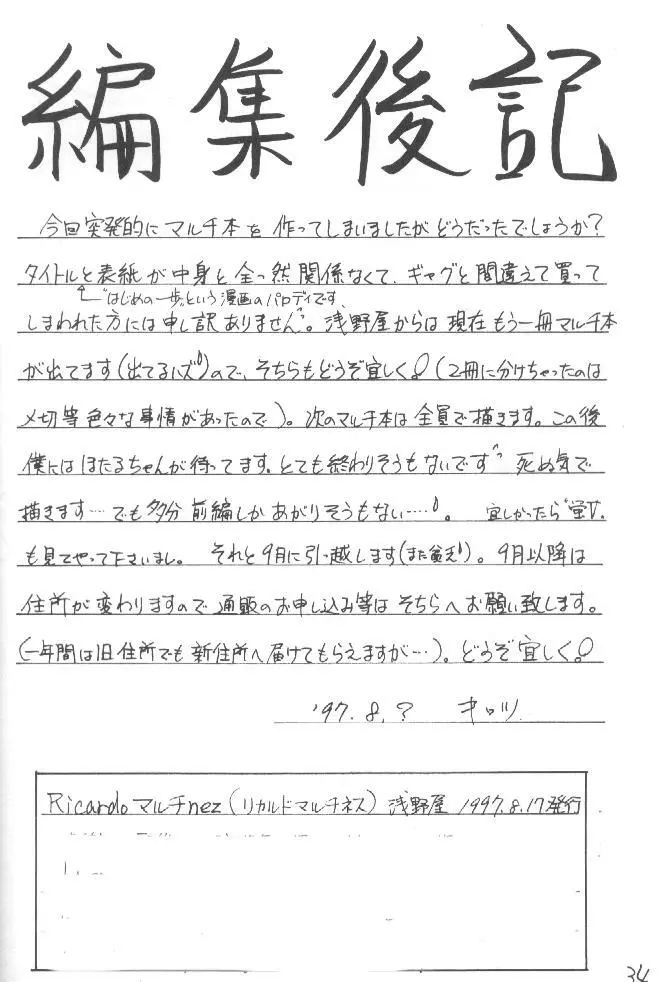 編集後記
今回突発的にマルチ本を作ってしまいましたがどうだったでしょうか?
タイトルと表紙が中身と全っ然関係なくて、ギャグと間違えて買って
"はじめの一歩"という漫画のパロディです、
しまわれた方には申し訳ありません^^。浅野屋からは現在もう一冊マルチ本
が出てます(出てるハズ)ので、そちらもどうぞ宜しく!(2冊に分けちゃったのは
〆切等色々な事情があったので)。次のマルチ本は全員で描きます。この後
僕にはほたるちゃんが待ってます。とても終わりそうもないです^^ 死ぬ気で
描きます…でも多分前編しかあがりそうもない……。 宜しかったら"蛍V"
も見てやって下さいまし。 それと9月に引っ越します(また貧乏)。9月以降は
住所が変わりますので通販のお申し込み等はそちらへお願い致します。
(一年間は旧住所でも新住所へ届けてもらえますが…)。どうぞ宜しく。!
'97.8.? キロツ
Ricardoマルチnez(リカルドマルチネス)浅野屋 1997.8.17発行
34